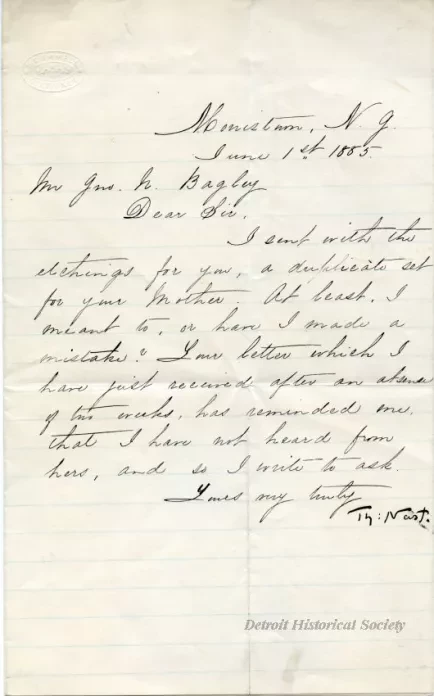 Morristown, N. J.
June 1st 1885.
Mr Jno. N. Bagley
Dear Sir.
I sent with the
etchings for you, a duplicate set
for your Mother. At least, I
meant to, or have I made a
mistake? Your letter which I
have just received after an absence
of two weeks, has reminded me,
that I have not heard from
hers, and so I write to ask.
Yours very truly
Th: Nast.
Detroit Historical Society